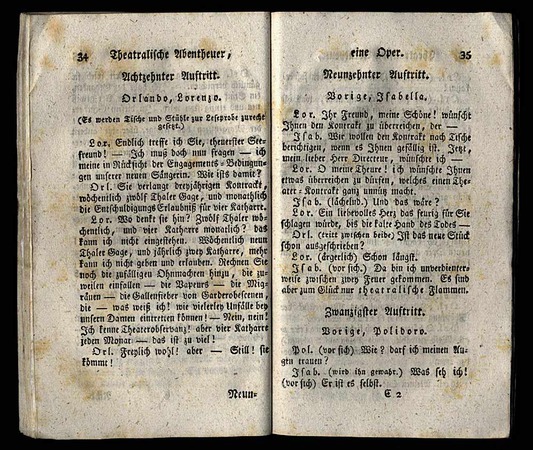 34 Theatralische Abentheuer,
Achtzehnter Auftritt.
Orlando, Lorenzo.
(Es werden Tische und Stühle zur Leseprobe zurecht
gesetzt.)
Lor. Endlich treffe ich Sie, theuerster See-
freund! — Ich muß doch nun fragen — ich
meine in Rücksicht der Engagements-Bedingun-
gen unserer neuen Sängerin. Wie ists damit?
Orl. Sie verlangt dreyjährigen Kontrakt,
wöchentlich zwölf Thaler Gage, und monathlich
die Entschuldigungs Erlaubniß für vier Katharre.
Lor. Wo denkt sie hin? Zwölf Thaler wö-
chentlich, und vier Katharre monatlich? das
kann ich nicht eingestehen. Wöchentlich neun
Thaler Gage, und jährlich zwey Katharre, mehr
kann ich nicht geben und erlauben. Rechnen Sie
noch die zufälligen Ohnmachten hinzu, die zu-
weilen einfallen — die Vapeurs — die Mig-
ränen — die Gallenfieber von Garderobescenen,
die — was weiß ich! wie vielerley Unfälle bey
unsern Damen eintretten können! — Nein, nein!
Ich kenne Theaterobservanz! aber vier Katharre
jeden Monat — das ist zu viel!
Orl. Freylich wohl! aber — Still! sie
kömmt!
Neun-
eine Oper. 35
Neunzehnter Auftritt.
Vorige, Isabella.
Lor. Ihr Freund, meine Schöne! wünscht
Ihnen den Kontrakt zu überreichen, der —
Isab. Wir wollen den Kontrakt nach Tische
berichtigen, wenn es Ihnen gefällig ist. Jetzt,
mein lieber Herr Directeur, wünschte ich —
Lor. O meine Theure! ich wünschte Ihnen
etwas überreichen zu dürfen, welches einen The-
ater-Kontrakt ganz unnütz macht.
Isab. (lächelnd.) Und das wäre?
Lor. Ein liebevolles Herz das feurig für Sie
schlagen würde, bis die kalte Hand des Todes —
Orl. (tritt zwischen beide) Ist das neue Stück
schon ausgeschrieben?
Lor. (ärgerlich) Schon längst.
Isab. (vor sich.) Da bin ich unverdienter-
weise zwischen zwey Feuer gekommen. Es sind
aber zum Glück nur theatralische Flammen.
Zwanzigster Auftritt.
Vorige, Polidoro.
Pol. (vor sich) Wie? darf ich meinen Au-
gen trauen?
Isab. (wird ihn gewahr.) Was seh ich!
(vor sich) Er ist es selbst.
C 2